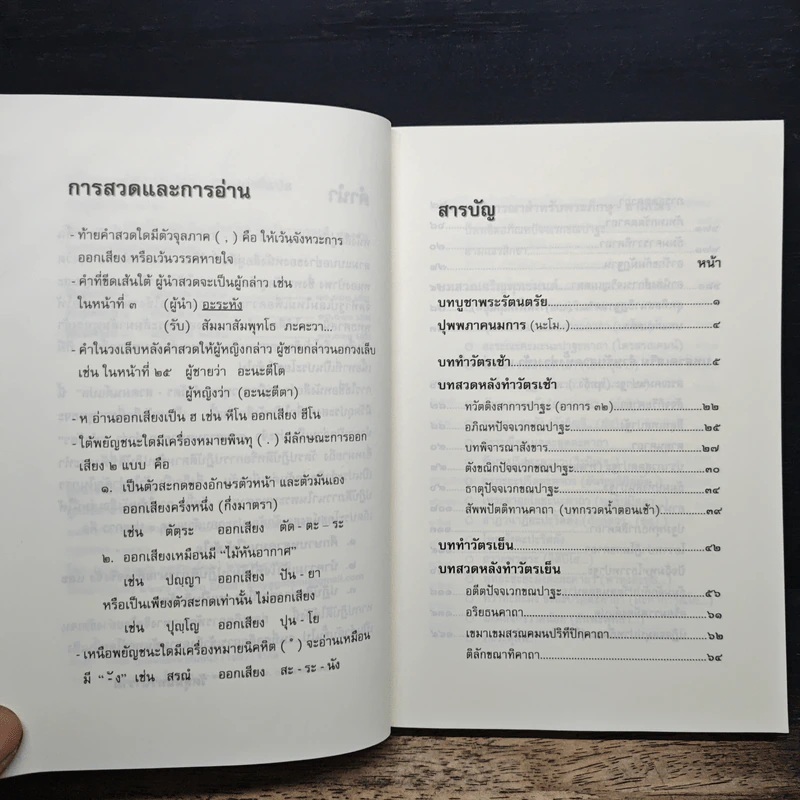 การสวดและการอ่าน
- ท้ายคำสวดใดมีตัวจุลภาค ( , ) คือ ให้เว้นจังหวะการ
ออกเสียง หรือเว้นวรรคหายใจ
- คำที่ขีดเส้นใต้ ผู้นำสวดจะเป็นผู้กล่าว เช่น
ในหน้าที่ ๓ (ผู้นำ) อะระหัง
(รับ) สัมมาสัมพุทโธ ภะคะวา...
- คำในวงเล็บหลังคำสวดให้ผู้หญิงกล่าว ผู้ชายกล่าวนอกวงเล็บ
เช่น ในหน้าที่ ๒๕ ผู้ชายว่า อะนะตีโต
ผู้หญิงว่า (อะนะตีตา)
- ห อ่านออกเสียงเป็น ฮ เช่น หีโน ออกเสียง ฮีโน
- ใต้พยัญชนะใดมีเครื่องหมายพินทุ ( . ) มีลักษณะการออก
เสียง ๒ แบบ คือ
๑. เป็นตัวสะกดของอักษรตัวหน้า และตัวมันเอง
ออกเสียงครึ่งหนึ่ง (กึ่งมาตรา)
เช่น ตัตฺระ ออกเสียง ตัด - ตะ - ระ
๒. ออกเสียงเหมือนมี “ไม้หันอากาศ”
เช่น ปญฺญา ออกเสียง ปัน - ยา
หรือเป็นเพียงตัวสะกดเท่านั้น ไม่ออกเสียง
เช่น ปุญฺโญ ออกเสียง ปุน - โย
- เหนือพยัญชนะใดมีเครื่องหมายนิคหิต ( ํ ) จะอ่านเหมือน
มี “-ัง” เช่น สรณํ ออกเสียง สะ - ระ - นัง
สารบัญ
หน้า
บทบูชาพระรัตนตรัย...๑
ปุพพภาคนมการ (นะโม..)...๔
บททำวัตรเช้า...๕
บทสวดหลังทำวัตรเช้า
ทวัตติงสาการปาฐะ (อาการ ๓๒)...๒๒
อภิณหปัจจเวกขณปาฐะ...๒๕
บทพิจารณาสังขาร...๒๗
ตังขณิกปัจจเวกขณปาฐะ...๓๐
ธาตุปัจจเวกขณปาฐะ...๓๔
สัพพปัตติทานคาถา (บทกรวดน้ำตอนเช้า)...๓๙
บททำวัตรเย็น...๔๒
บทสวดหลังทำวัตรเย็น
อตีตปัจจเวกขณปาฐะ...๕๖
อริยธนคาถา...๖๑
เขมาเขมสรณคมนปริทีปิกคาถา...๖๒
ติลักขณาทิคาถา...๖๔